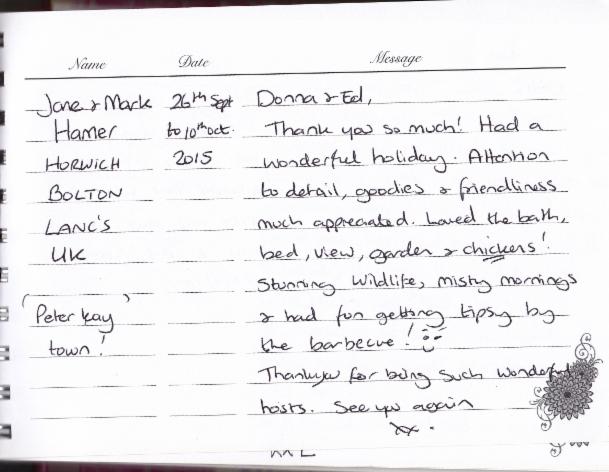 Name Date Message
Jane & Mark 26th Sept Donna & Ed,
Hamer to 10th Oct. Thank you so much! Had a
HORWICH 2015 wonderful holiday. Attention
BOLTON to detail, goodies & friendliness
LANC'S much appreciated. Loved the bath,
UK bed, view, garden & chickens!
Stunning wildlife, misty mornings
'Peter Kay & had fun getting tipsy by
town!' the barbecue!
Thankyou for being such wonderful
hosts. See you again
xx.